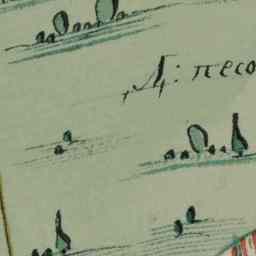 Д: песо